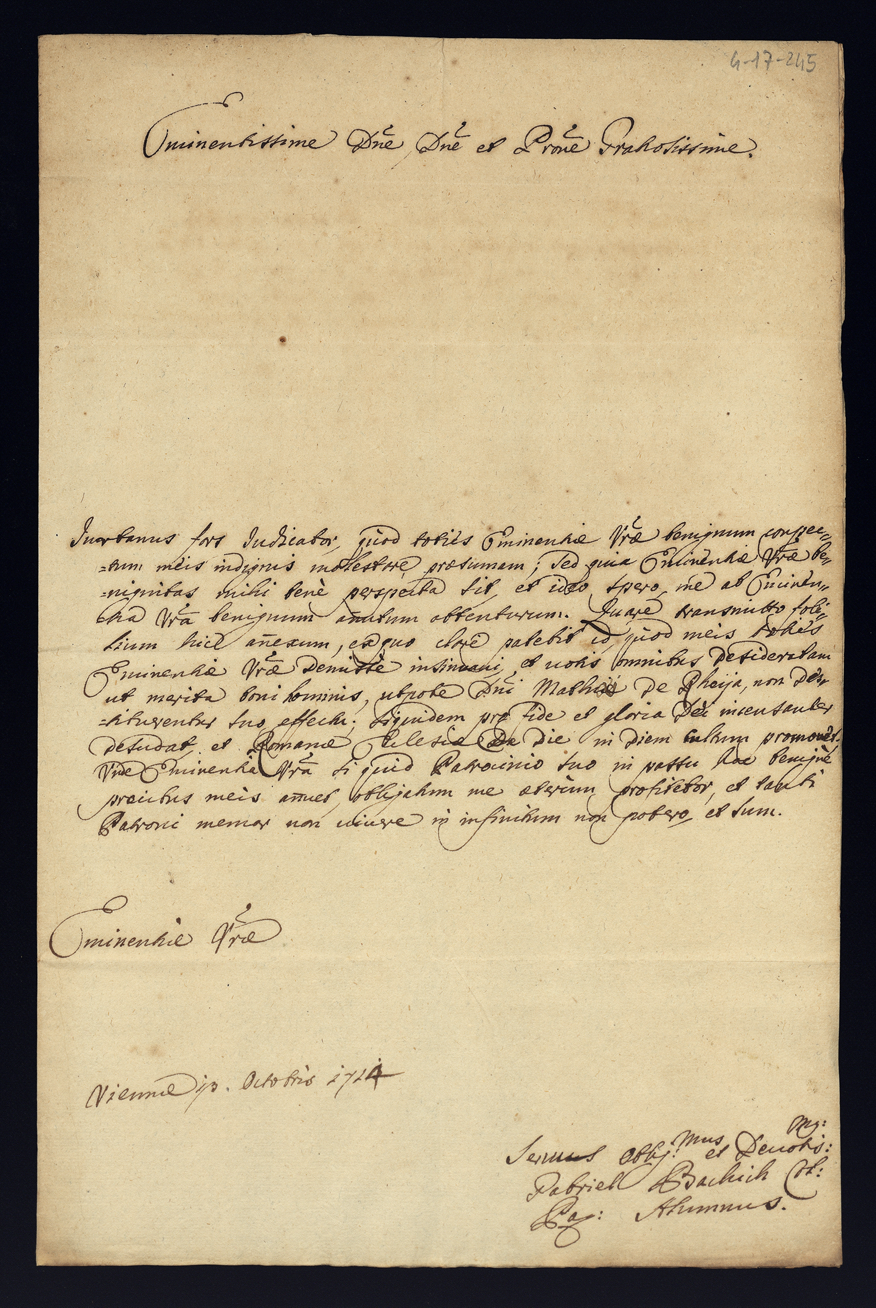 4-17-245
Eminentissime Dne Dne et Prone Gratiosissime.
fors Judicabor, quod toties Eminentiæ Vræ benignum conspec=
=tum meis indignus molestare præsumam; sed quia Eminentiæ Vræ be=
=nignitas mihi bene perspecta sit, et ideo spero, me ab Eminen=
tia Vra benignum annutum obtenturum. Quare transmitto foli=
hicce annexum, ex quo clare patebit id, quod meis toties
Eminentiæ Vræ demisse insinuavi, et votis omnibus desideratam
ut merita boni hominis, utpote Dni Mathiæ de, non des=
=tituerentur suo effectu; siquidem pro fide et gloria Dei incessanter
desudat, et Romanæ Eclesiæ de die in diem cultum promovet.
Vnde Eminentia Vra si quid Patrocinio suo in passu hoc benigne
precibus meis annuet, obligatum me æternum profitebor, et tanti
Patroni memor non vivere in infinitum non potero, et sum.
Eminentiæ Vræ
Viennæ 13. Octobris 1714
Servus oblig: mus et Devotis: mq:
Gabriel Bachich
Alumnus.